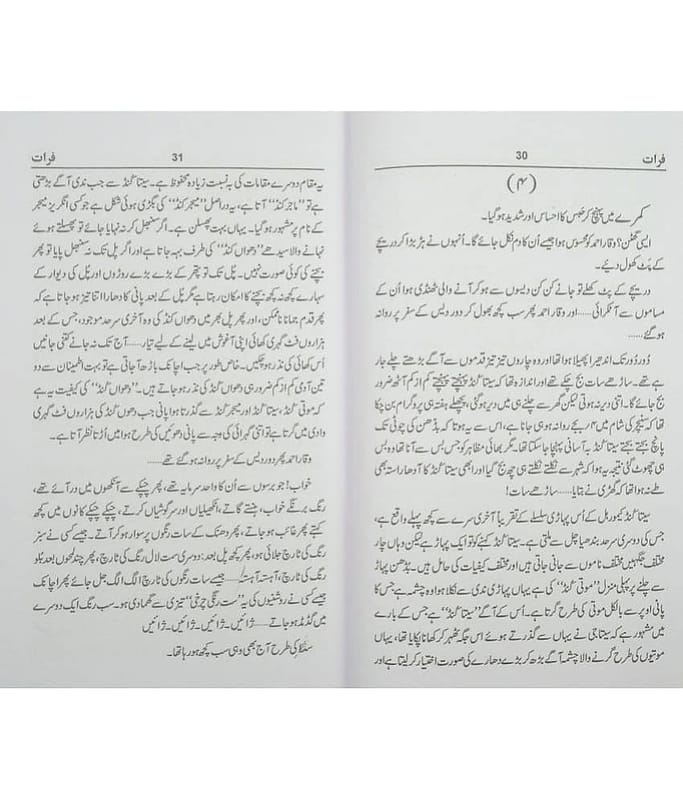 30 فرات
(۴)
کمرے میں پہنچ کر حبس کا احساس اور شدید ہو گیا۔
ایسی گھٹن؟ وقار احمد کو محسوس ہوا جیسے اُن کا دم نکل جائے گا۔ اُنہوں نے ہڑبڑا کر دریچے
کے پٹ کھول دیئے۔
دریچے کے پٹ کھلے تو جانے کن کن دیسوں سے ہو کر آنے والی ٹھنڈی ہوا اُن کے
مساموں سے آ ٹکرائی...... اور وقار احمد پھر سب کچھ بھول کر دور دیس کے سفر پر روانہ
ہو گئے
دُور دُور تک اندھیرا پھیلا ہوا تھا اور وہ چاروں تیز تیز قدموں سے آگے بڑھتے چلے جا
رہے تھے۔ ساڑھے سات بج چکے تھے اور اندازہ تھا کہ سیتا کنڈ پہنچتے پہنچتے کم از کم آٹھ ضرور
بج جائے گا۔ اتنی دیر نہ ہوتی لیکن گھر سے چلنے ہی میں دیر ہو گئی، پچھلے ہفتہ ہی پروگرام بن چکا
تھا کہ سنیچر کی شام میں ۴ بجے روانہ ہو ہی جانا ہے، اس سے یہ ہوتا کہ بڈھن کی چوٹی تک
پانچ بجتے بجتے سیتا کنڈ بہ آسانی پہنچا جا سکتا تھا۔ مگر بھائی مظاہر کو جس بس سے آنا تھا وہ بس
ہی چھوٹ گئی نتیجہ یہ ہوا کہ شہر سے نکلتے نکلتے ہی چھ بج گیا اور ابھی سیتا کنڈ کا آدھا راستہ بھی
طے نہ ہوا تھا کہ گھڑی نے بتایا...... ساڑھے سات!
سیتا کنڈ کیمور ہل کے اُس پہاڑی سلسلے کے تقریباً آخری سرے سے کچھ پہلے واقع ہے،
جس کی دوسری سرحد بندھیا چل سے ملتی ہے۔ سیتا کنڈ کہنے کو تو ایک پہاڑ ہے لیکن وہاں چار
مختلف جگہیں مختلف ناموں سے جانی جاتی ہیں اور مختلف کیفیات کی حامل ہیں۔ بڈھن پہاڑ
سے چلنے پر پہلی منزل ”موتی کنڈ“ کی ہے یہاں پہاڑی ندی سے نکلا ہوا وہ چشمہ ہے جس کا
پانی اوپر سے بالکل موتی کی طرح گرتا ہے۔ اُس کے آگے ”سیتا کنڈ“ ہے جس کے بارے
میں مشہور ہے کہ سیتا جی نے یہاں سے گذرتے ہوئے اس جگہ ٹھہر کر کھانا پکایا تھا، یہاں
موتیوں کی طرح گرنے والا چشمہ آگے بڑھ کر بڑے دھارے کی صورت اختیار کر لیتا ہے اور
31 فرات
یہ مقام دوسرے مقامات کی بہ نسبت زیادہ محفوظ ہے۔ سیتا کنڈ سے جب ندی آگے بڑھتی
ہے تو ”ماجر کنڈ“ آتا ہے، یہ دراصل ”میجر کنڈ“ کی بگڑی ہوئی شکل ہے جو کسی انگریز میجر
کے نام پر مشہور ہو گیا۔ یہاں بہت پھسلن ہے۔ اگر سنبھل کر نہ نہایا جائے تو پھسلتے ہوئے
نہانے والا سیدھے ”دھواں کنڈ“ کی طرف بہہ جاتا ہے اور اگر پل تک نہ سنبھل پایا تو پھر
بچنے کی کوئی صورت نہیں۔ پل تک تو پتھر کے بڑے بڑے روڑوں اور پل کی دیوار کے
سہارے کچھ نہ کچھ بچنے کا امکان رہتا ہے مگر پل کے بعد پانی کا دھارا اتنا تیز ہو جاتا ہے کہ
پھر قدم جمانا ناممکن، اور پھر پل بھر میں دھواں کنڈ کی وہ آخری سرحد موجود، جس کے بعد
ہزاروں فٹ گہری کھائی اپنی آغوش میں لینے کے لیے تیار...... آج تک نہ جانے کتنی جانیں
اُس کھائی کی نذر ہو چکیں۔ خاص طور پر جب اچانک باڑھ آ جاتی ہے تو بہت اطمینان سے دو
تین آدمی کم از کم ضرور ہی دھواں کنڈ کی نذر ہو جاتے ہیں۔ ”دھواں کنڈ“ کی کیفیت یہ ہے
کہ موتی کنڈ، سیتا کنڈ اور میجر کنڈ سے گذرتا ہوا پانی جب دھواں کنڈ کی ہزاروں فٹ گہری
وادی میں گرتا ہے تو اتنی گہرائی کی وجہ سے پانی دھوئیں کی طرح ہوا میں اُڑتا نظر آتا ہے۔
وقار احمد پھر دور دیس کے سفر پر روانہ ہو گئے تھے......
خواب! جو برسوں سے اُن کا واحد سرمایہ تھے، پھر چپکے سے آنکھوں میں در آئے تھے،
رنگ برنگے خواب، ہنستے گاتے، اٹکھیلیاں اور سرگوشیاں کرتے، چپکے چپکے کانوں میں کچھ
کہتے پھر غائب ہو جاتے، پھر دھنک کے سات رنگوں پر سوار ہو کر آتے۔ جیسے کسی نے سبز
رنگ کی ٹارچ جلائی ہو، پھر کچھ پل بعد: دوسری سمت لال رنگ کی ٹارچ، پھر چند لمحوں بعد نیلو
رنگ کی ٹارچ، آہستہ آہستہ...... جیسے سات رنگوں کی ٹارچ الگ الگ جل جائے پھر اچانک
جیسے کسی نے روشنیوں کی یہ ”ست رنگی چرخی“ تیزی سے گھما دی ہو۔ سب رنگ ایک دوسرے
میں گڈمڈ ہو جاتے...... ژائیں۔ ژائیں۔ ژائیں
کی طرح آج بھی وہی سب کچھ ہو رہا تھا۔